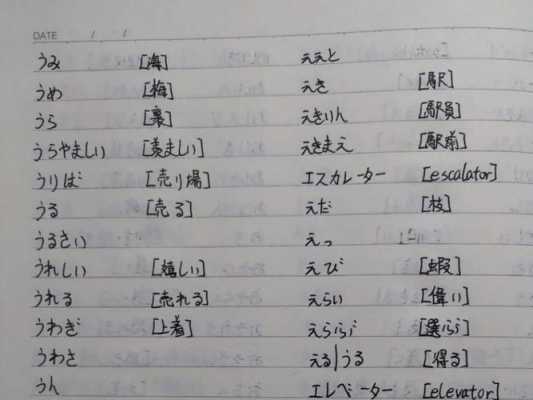 DATE / /
うみ [海]
うめ [梅]
うら [裏]
うらやましい [羨ましい]
うりば [売り場]
うる [売る]
うるさい
うれしい [嬉しい]
うれる [売れる]
うわぎ [上着]
うわさ
うん
ええと
えき [駅]
えきいん [駅員]
えきまえ [駅前]
エスカレーター [escalator]
えだ [枝]
えっ
えび [蝦]
えらい [偉い]
えらぶ [選ぶ]
える|うる [得る]
エレベーター [elevator]